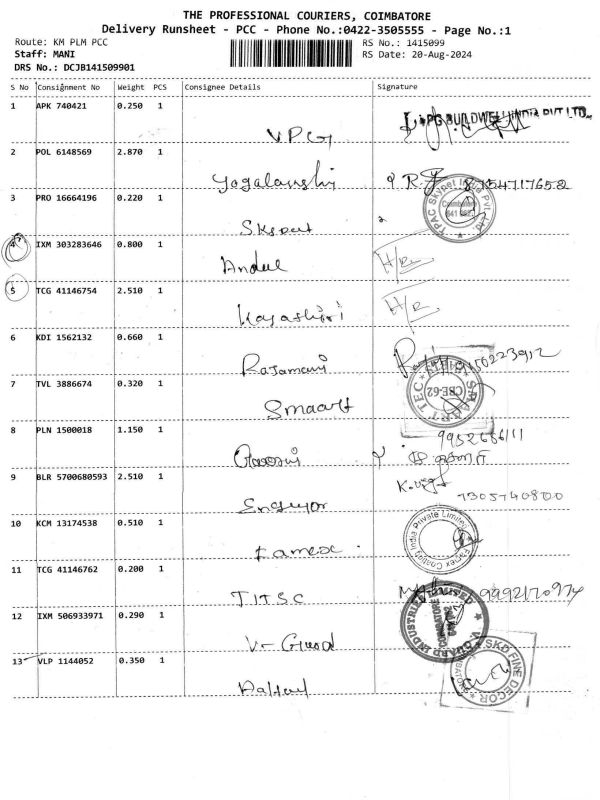 THE PROFESSIONAL COURIERS, COIMBATORE
Delivery Runsheet - PCC - Phone No.:0422-3505555 - Page No.:1
Route: KM PLM PCC
RS No.: 1415099
Staff: MANI
RS Date: 20-Aug-2024
DRS No.: DCJB141509901
S No Consignment No Weight PCS Consignee Details Signature
1 APK 740421 0.250 1
VPG BUILDWELL INDIA PVT LTD.
VPG
2 POL 6148569 2.870 1
Yogalanshi 8754717652
3 PRO 16664196 0.220 1
TPAC Skypet India Pvt. Ltd.
Coimbatore
4 IXM 303283646 0.800 1
H/R
5 TCG 41146754 2.510 1
H/R
6 KDI 1562132 0.660 1
Rajamani
7 TVL 3886674 0.320 1
SMAART TEC
CBE-62
Smaart
8 PLN 1500018 1.150 1
9952686111
9 BLR 5700680593 2.510 1
7305740800
10 KCM 13174538 0.510 1
Famex Coating India Private Limited
Famex
11 TCG 41146762 0.200 1
TITSC 9992170974
12 IXM 506933971 0.290 1
V-GUARD INDUSTRIES LIMITED
V-Guard
13 VLP 1144052 0.350 1
SKD FINE DECOR